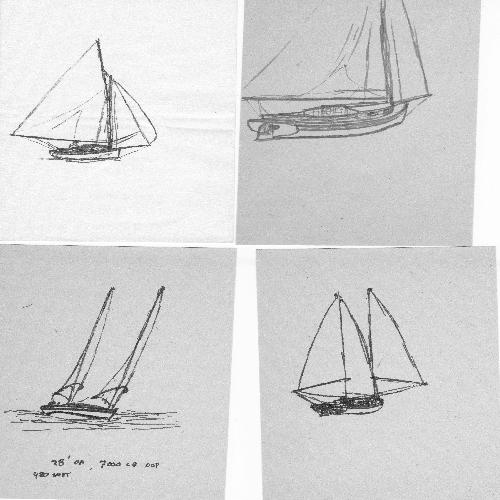 28' OA, 7000 LB DSP
480 SQ FT